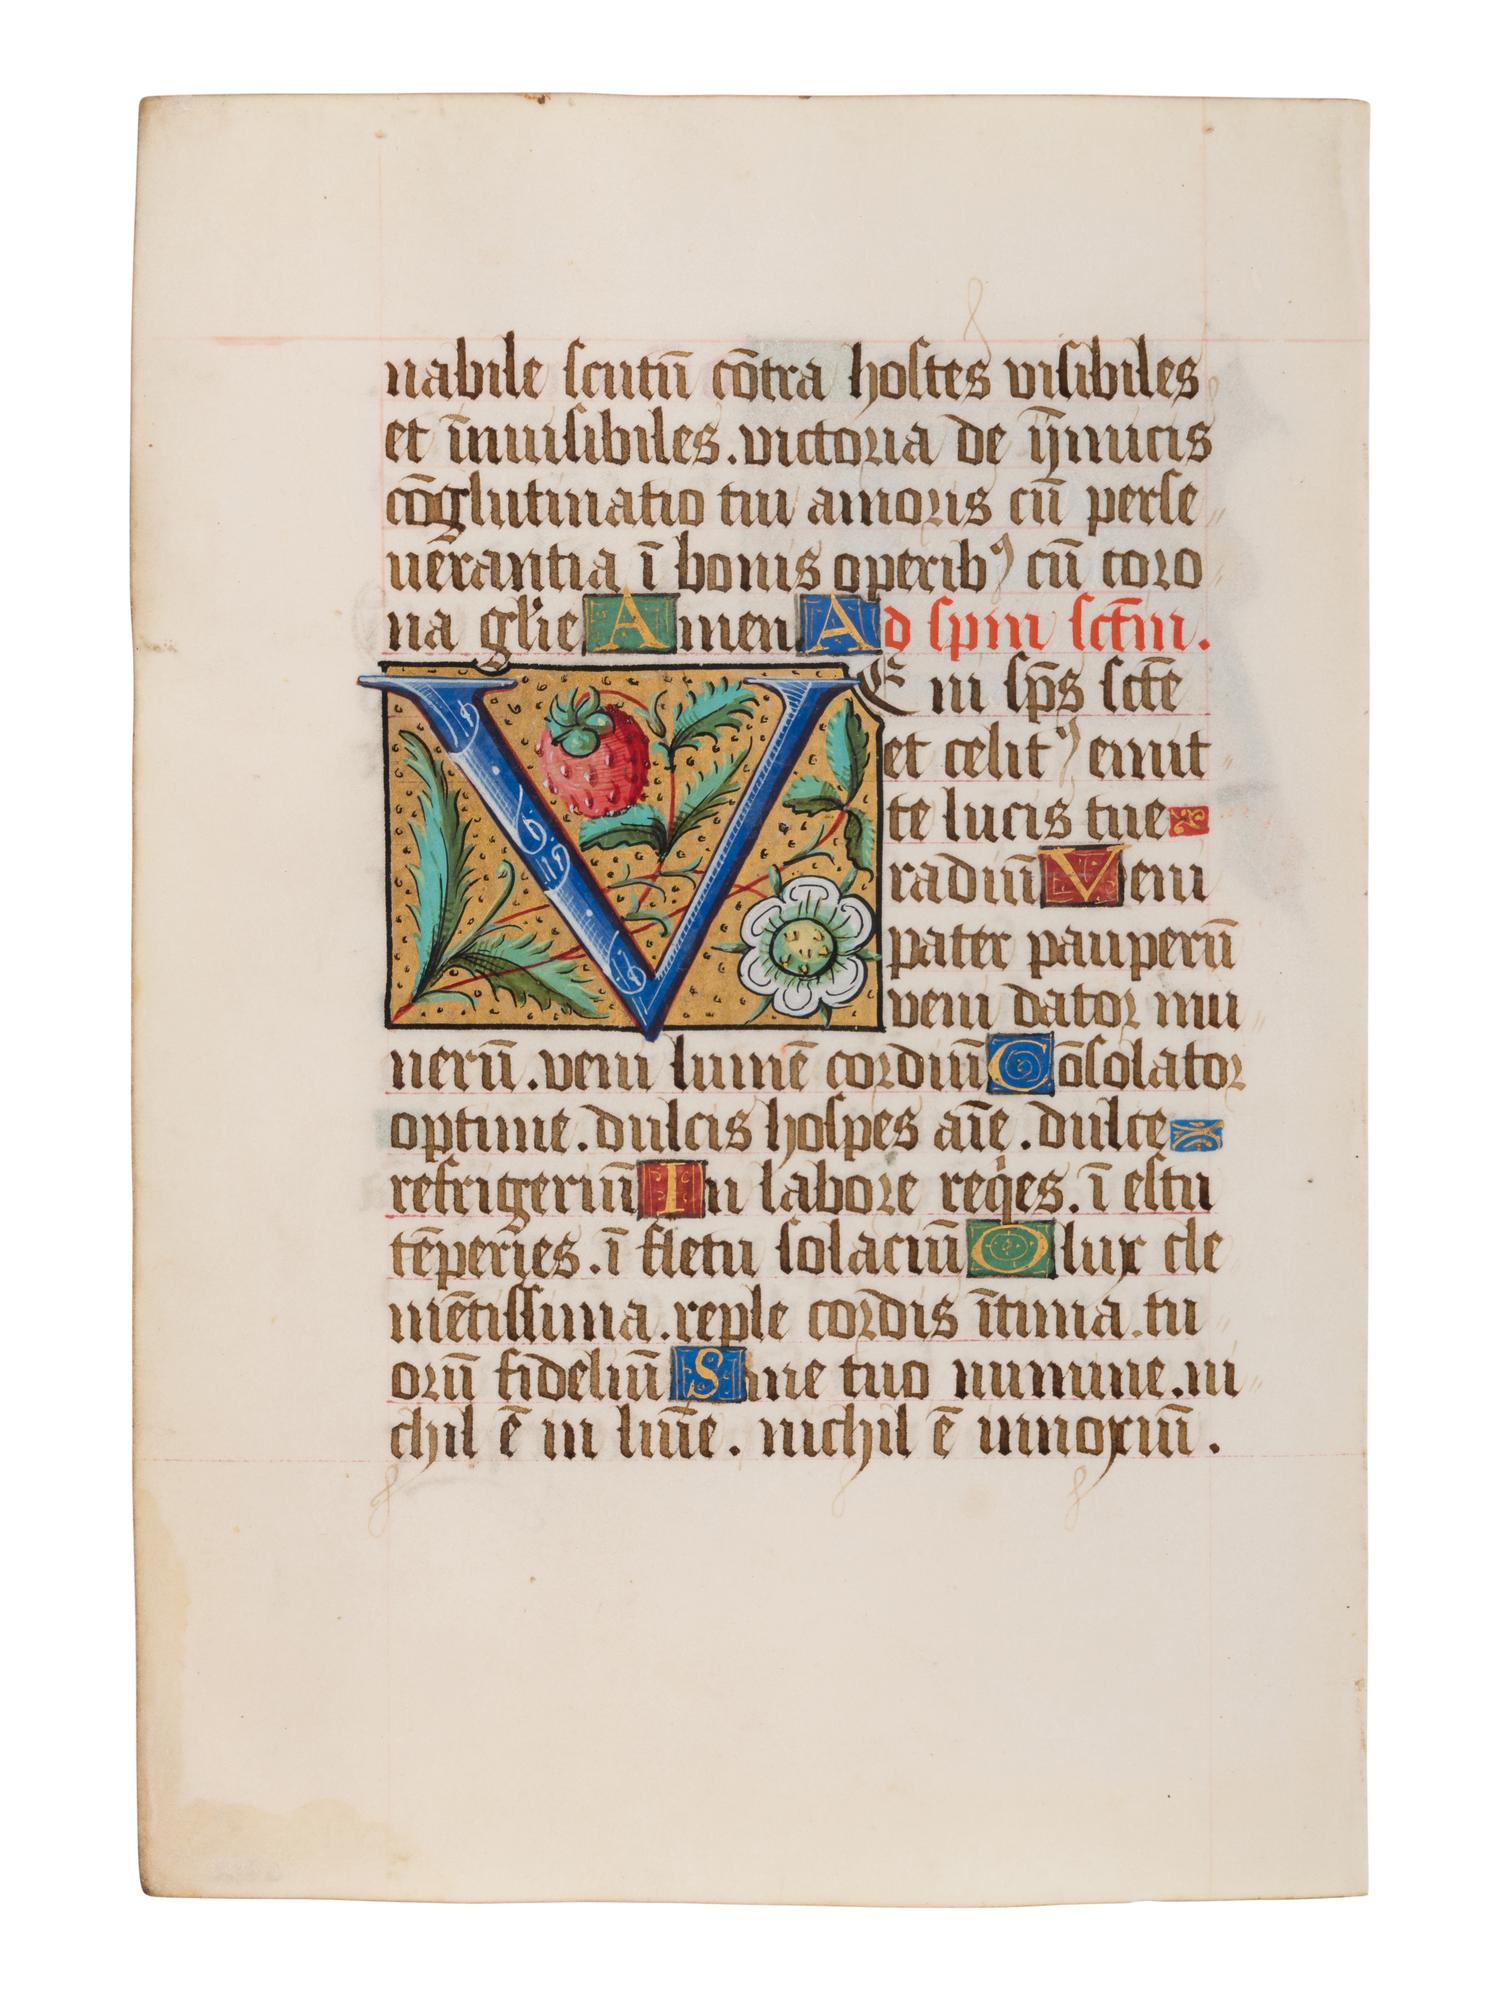 nabile scutū cōtra hostes visibiles
et īnuisibiles. victoria de ȳmicis
cōglutinatio tui amoris cū perse
uērantia ī bonis operibꝰ cū coro
na glīe Amen Ad spm sctm.
VEni sp̄s scte
et celitꝰ emit
te lucis tue
radiū Veni
pater pauperū
veni dator mu
nerū. veni lumē cordiū Cōsolator
optime. dulcis hospes aīe. dulce
refrigeriū In labore reqͥes. ī estu
tēperies. ī fletu solaciū O lux cle
mētissima. reple cordis ītima. tu
orū fideliū Sine tuo numine. ni
chil ē in līne. nichil ē innoxiū.